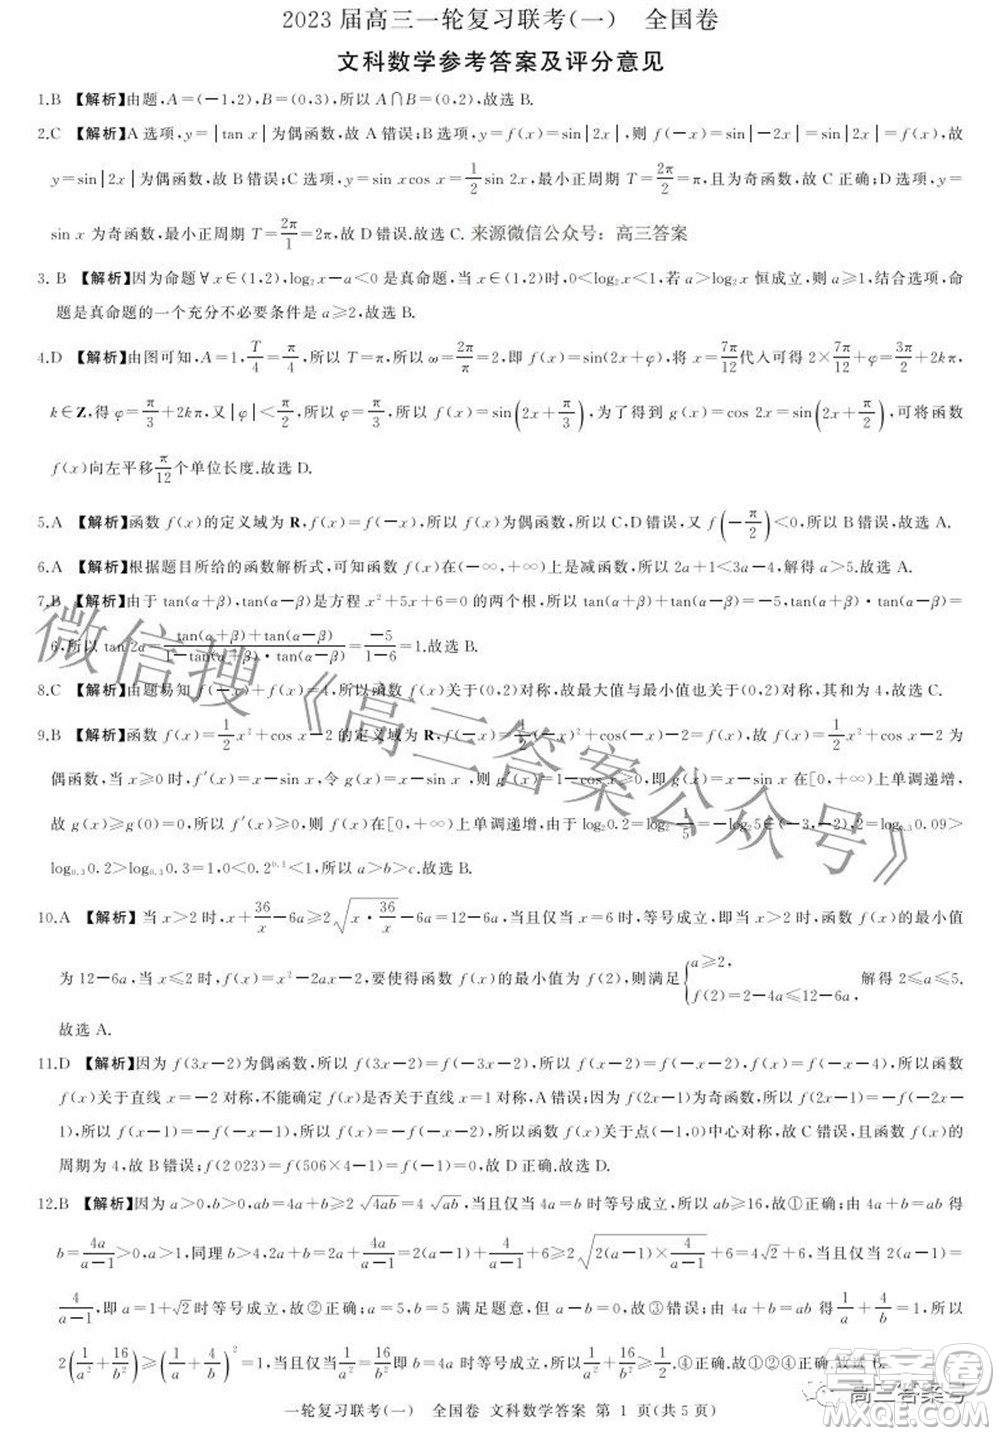 2023 届高三一轮复习联考(一)　全国卷
文科数学参考答案及评分意见
1.B 【解析】由题,A=(−1,2),B=(0,3),所以 A∩B=(0,2),故选 B.
2.C 【解析】A 选项,y=|tan x|为偶函数,故 A 错误;B 选项,y=f(x)=sin|2x|,则 f(−x)=sin|−2x|=sin|2x|=f(x),故
y=sin|2x|为偶函数,故 B 错误;C 选项,y=sin xcos x=1/2 sin 2x,最小正周期 T=2π/2=π,且为奇函数,故 C 正确;D 选项,y=
sin x 为奇函数,最小正周期 T=2π/1=2π,故 D 错误.故选 C. 来源微信公众号：高三答案
3. B 【解析】因为命题∀x∈(1,2),log₂x−a<0 是真命题,当 x∈(1,2)时,0<log₂x<1,若 a>log₂x 恒成立,则 a≥1,结合选项,命
题是真命题的一个充分不必要条件是 a≥2,故选 B.
4.D 【解析】由图可知,A=1,T/4=π/4,所以 T=π,所以 ω=2π/π=2,即 f(x)=sin(2x+φ),将 x=7π/12代入可得 2×7π/12+φ=3π/2+2kπ,
k∈Z,得 φ=π/3+2kπ,又|φ|<π/2,所以 φ=π/3,所以 f(x)=sin(2x+π/3),为了得到 g(x)=cos 2x=sin(2x+π/2),可将函数
f(x)向左平移π/12个单位长度.故选 D.
5.A 【解析】函数 f(x)的定义域为 R,f(x)=f(−x),所以 f(x)为偶函数,所以 C,D 错误,又 f(−π/2)<0,所以 B 错误,故选 A.
6.A 【解析】根据题目所给的函数解析式,可知函数 f(x)在(−∞,+∞)上是减函数,所以 2a+1<3a−4,解得 a>5.故选 A.
7.B 【解析】由于 tan(α+β),tan(α−β)是方程 x²+5x+6=0 的两个根,所以 tan(α+β)+tan(α−β)=−5,tan(α+β)·tan(α−β)=
6,所以 tan 2α=(tan(α+β)+tan(α−β))/(1−tan(α+β)·tan(α−β))=−5/(1−6)=1.故选 B.
8.C 【解析】由题易知 f(−x)+f(x)=4,所以函数 f(x)关于(0,2)对称,故最大值与最小值也关于(0,2)对称,其和为 4,故选 C.
9.B 【解析】函数 f(x)=1/2x²+cos x−2 的定义域为 R,f(−x)=1/2(−x)²+cos(−x)−2=1/2x²+cos x−2=f(x),故 f(x)为
偶函数,当 x≥0 时,f′(x)=x−sin x,令 g(x)=x−sin x,则 g′(x)=1−cos x≥0,即 g(x)=x−sin x 在[0,+∞)上单调递增,
故 g(x)≥g(0)=0,所以 f′(x)≥0,则 f(x)在[0,+∞)上单调递增,由于 log₂0.2=log₂1/5=−log₂5∈(−3,−2),2=log₀.₃0.09>
log₀.₃0.2>log₀.₃0.3=1,0<0.2⁰·³<1,所以 a>b>c.故选 B.
10.A 【解析】当 x>2 时,x+36/x−6a≥2√(x·36/x)−6a=12−6a,当且仅当 x=6 时,等号成立,即当 x>2 时,函数 f(x)的最小值
为 12−6a,当 x≤2 时,f(x)=x²−2ax−2,要使得函数 f(x)的最小值为 f(2),则满足{a≥2, f(2)=2−4a≤12−6a, 解得 2≤a≤5.
故选 A.
11.D 【解析】因为 f(3x−2)为偶函数,所以 f(3x−2)=f(−3x−2),所以 f(x−2)=f(−x−2),f(x)=f(−x−4),所以函数
f(x)关于直线 x=−2 对称,不能确定 f(x)是否关于直线 x=1 对称,A 错误;因为 f(2x−1)为奇函数,所以 f(2x−1)=−f(−2x−
1),所以 f(x−1)=−f(−x−1),所以 f(x)=−f(−x−2),所以函数 f(x)关于点(−1,0)中心对称,故 C 错误,且函数 f(x)的
周期为 4,故 B 错误;f(2 023)=f(506×4−1)=f(−1)=0,故 D 正确.故选 D.
12.B 【解析】因为 a>0,b>0,ab=4a+b≥2√(4ab)=4√(ab),当且仅当 b=4a 时等号成立,所以 ab≥16,故①正确;由 4a+b=ab 得
b=4a/(a−1)>0,a>1,同理 b>4,2a+b=2a+4a/(a−1)=2(a−1)+4/(a−1)+6≥2√(2(a−1)×4/(a−1))+6=4√2+6,当且仅当 2(a−1)=
4/(a−1),即 a=1+√2时等号成立,故②正确;a=b=5 满足题意,但 a>0,b>0,故③错误;由 4a+b=ab 得1/a+4/b=1,所以
2(1/a²+16/b²)≥(1/a+4/b)²=1,当且仅当1/a²=16/b²即 b=4a 时等号成立,所以1/a²+16/b²≥1/2,④正确.故选 B.
一轮复习联考(一)　全国卷　文科数学答案　第 1 页(共 5 页)
微信搜《高三答案公众号》
高三答案号
答案圈
MXQE.COM